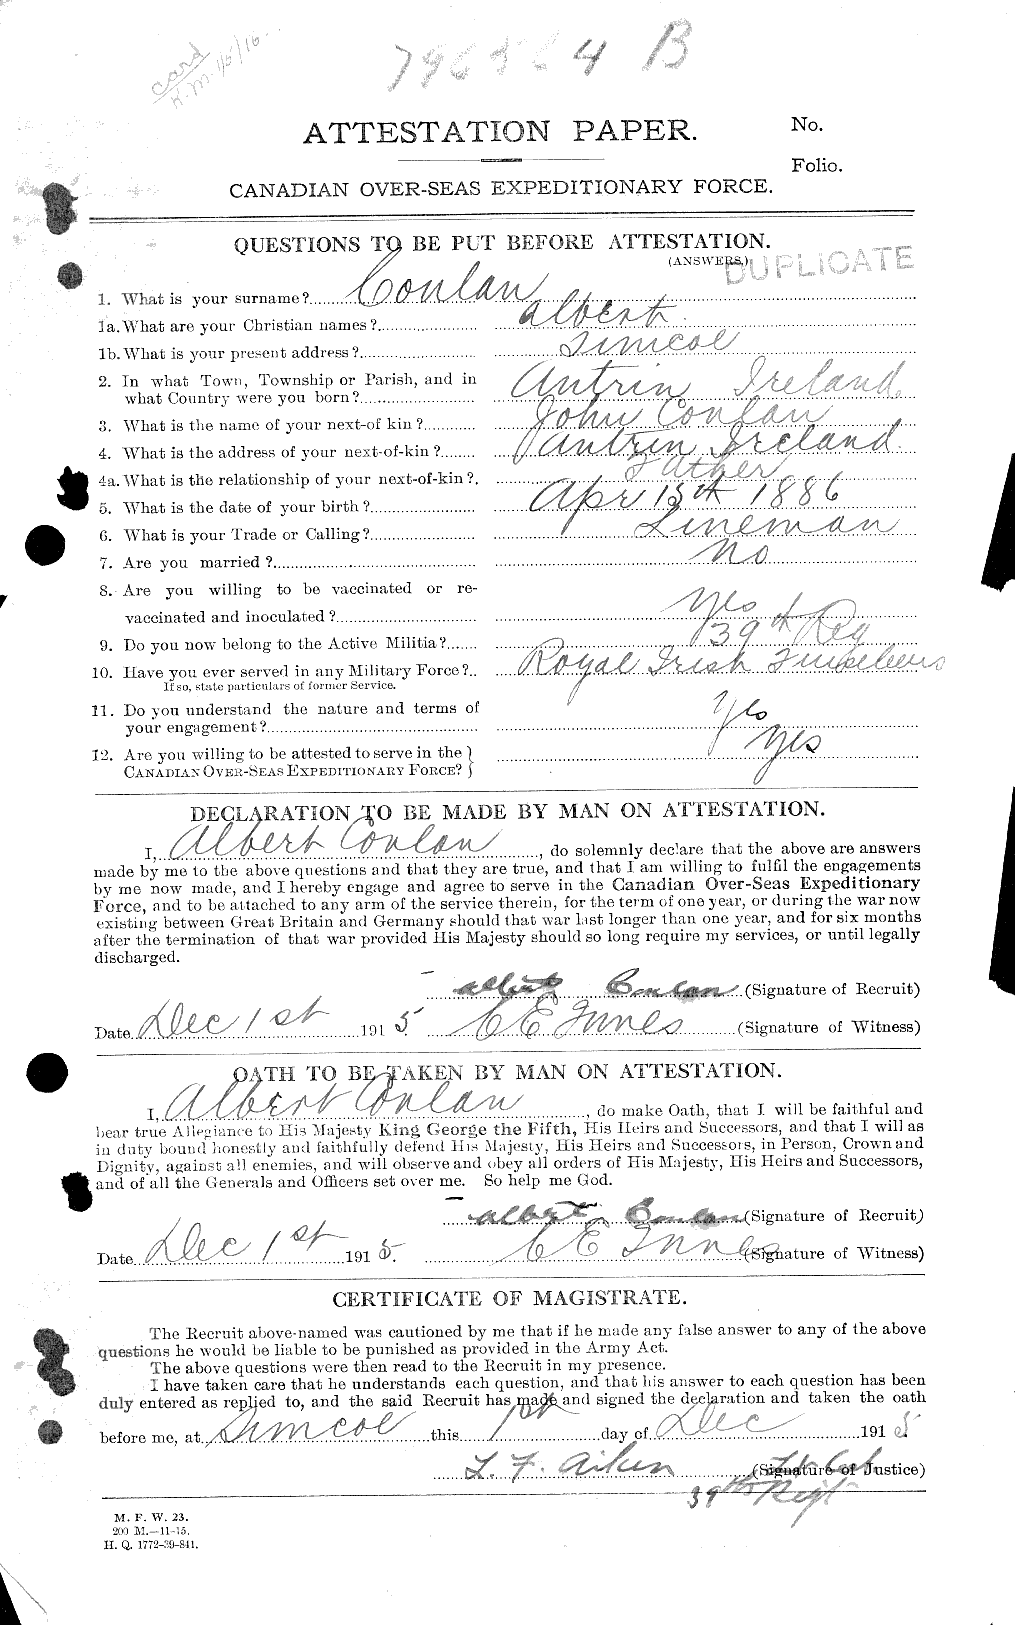 card
K.M. 1/5/16.
B
ATTESTATION PAPER.
No.
Folio.
CANADIAN OVER-SEAS EXPEDITIONARY FORCE.
QUESTIONS TO BE PUT BEFORE ATTESTATION.
(ANSWERS.)
DUPLICATE
1. What is your surname?.... Conlan
1a. What are your Christian names?.... Albert
1b. What is your present address?.... Simcoe
2. In what Town, Township or Parish, and in
what Country were you born?.... Antrin Ireland
3. What is the name of your next-of kin?.... John Conlan
4. What is the address of your next-of-kin?.... Antrin Ireland
4a. What is the relationship of your next-of-kin?. Father
5. What is the date of your birth?.... Apr 15th 1886
6. What is your Trade or Calling?.... Lineman
7. Are you married?.... No
8. Are you willing to be vaccinated or re-
vaccinated and inoculated?.... Yes
9. Do you now belong to the Active Militia?.... 39th Reg
10. Have you ever served in any Military Force?.. Royal Irish
If so, state particulars of former Service.
11. Do you understand the nature and terms of
your engagement?.... Yes
12. Are you willing to be attested to serve in the
CANADIAN OVER-SEAS EXPEDITIONARY FORCE? Yes
DECLARATION TO BE MADE BY MAN ON ATTESTATION.
I, Albert Conlan, do solemnly declare that the above are answers
made by me to the above questions and that they are true, and that I am willing to fulfil the engagements
by me now made, and I hereby engage and agree to serve in the Canadian Over-Seas Expeditionary
Force, and to be attached to any arm of the service therein, for the term of one year, or during the war now
existing between Great Britain and Germany should that war last longer than one year, and for six months
after the termination of that war provided His Majesty should so long require my services, or until legally
discharged.
Albert Conlan (Signature of Recruit)
Date Dec 1st 1915 C E Innes (Signature of Witness)
OATH TO BE TAKEN BY MAN ON ATTESTATION.
I, Albert Conlan, do make Oath, that I will be faithful and
bear true Allegiance to His Majesty King George the Fifth, His Heirs and Successors, and that I will as
in duty bound honestly and faithfully defend His Majesty, His Heirs and Successors, in Person, Crown and
Dignity, against all enemies, and will observe and obey all orders of His Majesty, His Heirs and Successors,
and of all the Generals and Officers set over me. So help me God.
Albert Conlan (Signature of Recruit)
Date Dec 1st 1915. C E Innes (Signature of Witness)
CERTIFICATE OF MAGISTRATE.
The Recruit above-named was cautioned by me that if he made any false answer to any of the above
questions he would be liable to be punished as provided in the Army Act.
The above questions were then read to the Recruit in my presence.
I have taken care that he understands each question, and that his answer to each question has been
duly entered as replied to, and the said Recruit has made and signed the declaration and taken the oath
before me, at Simcoe this 1st day of Dec 1915
L. F. Aiken (Signature of Justice)
39th Regt
M. F. W. 23.
200 M.—11-15.
H. Q. 1772-39-841.